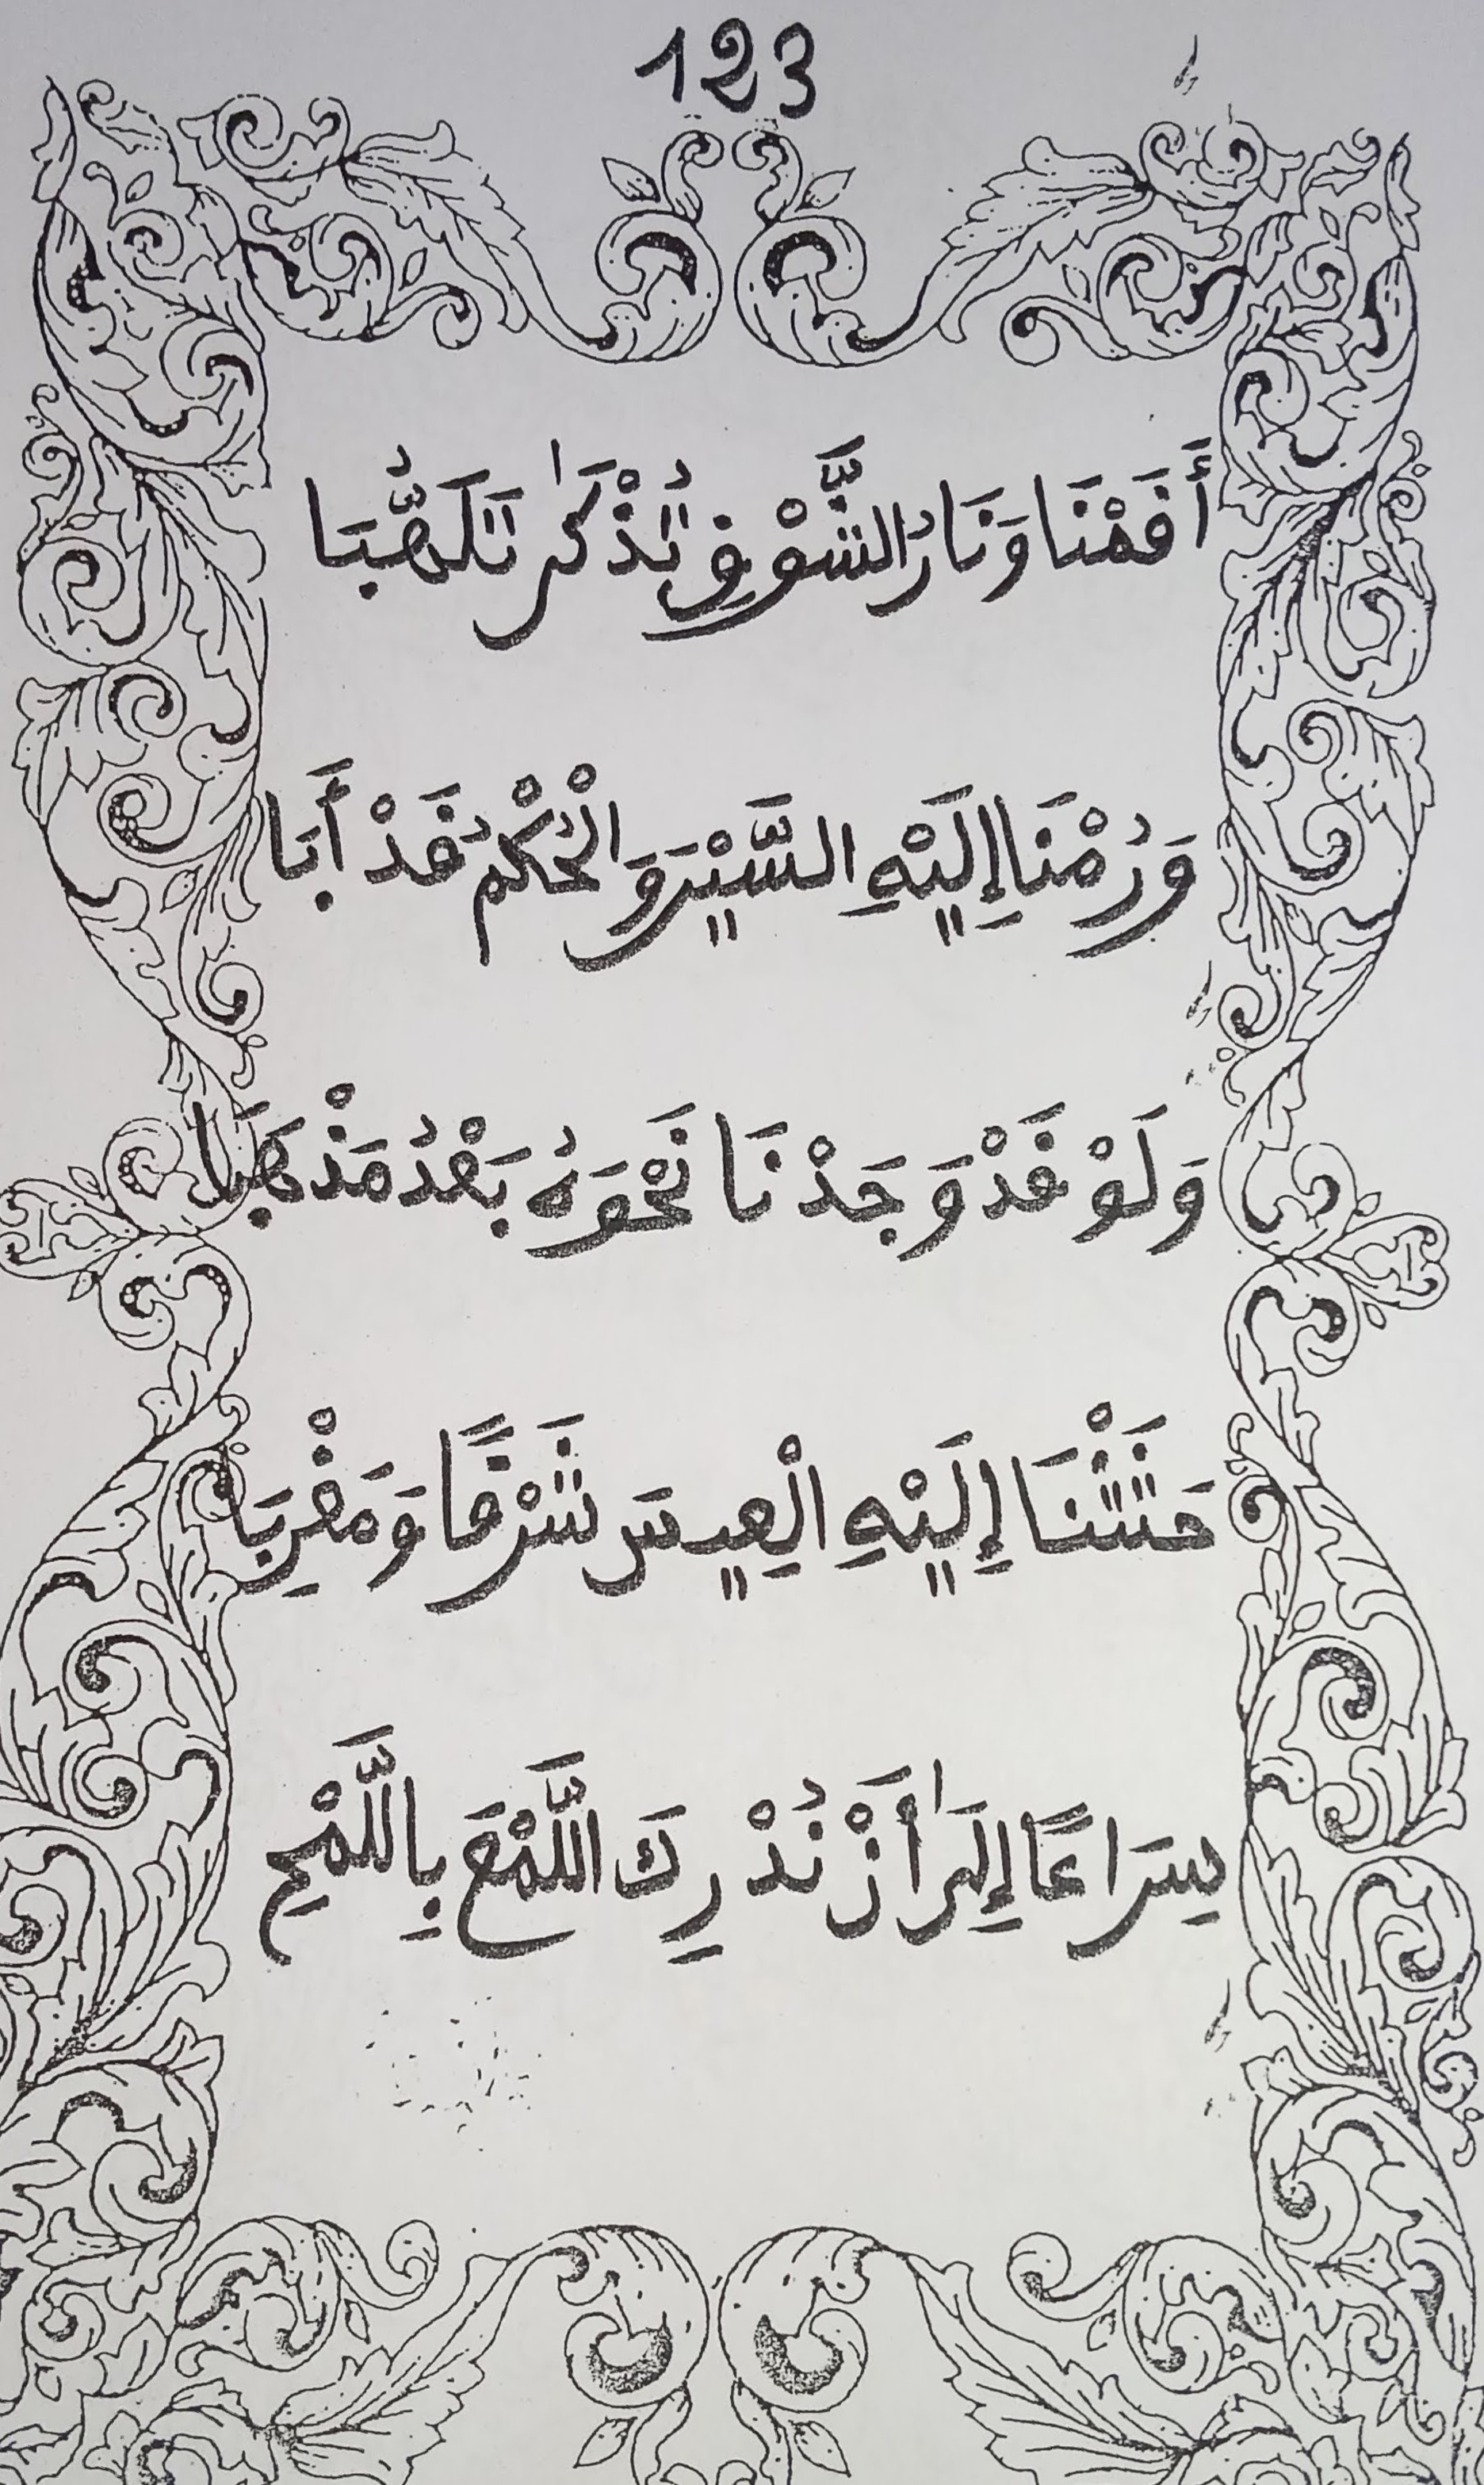 123
أَقَمْنَا وَنَارُ الشَّوْقِ تُذْكَىٰ تَلَهُّبَا
وَرُمْنَا إِلَيْهِ السَّيْرَ وَالْحُكْمُ قَدْ أَبَا
وَلَوْ قَدْ وَجَدْنَا نَحْوَهُ بَعْدُ مَذْهَبَا
حَثَثْنَا إِلَيْهِ الْعِيسَ شَرْقًا وَمَغْرِبَا
سِرَاعًا إِلَىٰ أَنْ نُدْرِكَ اللَّمْعَ بِاللَّمْحِ